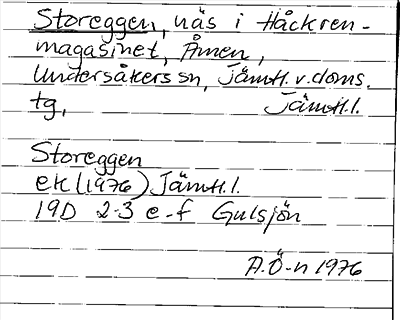 Storeggen, näs i Håckren-
magasinet, Åmen,
Undersåkers sn, Jämtl. v. doms.
tg, Jämtl. l.
Storeggen
ek (1976) Jämtl. l.
19D 2-3 e-f Gulsjön
A.Ö-n 1976